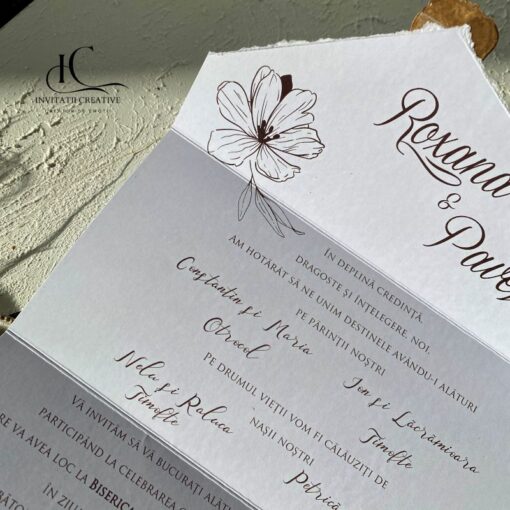 IC
INVITATII CREATIVE
Roxana
&
ÎN DEPLINĂ CREDINȚĂ,
DRAGOSTE ȘI ÎNȚELEGERE, NOI,
AM HOTĂRÂT SĂ NE UNIM DESTINELE AVÂNDU-I ALĂTURI
PE PĂRINȚII NOȘTRI
Constantin și Maria
Otrocol
Ion și Lăcrămioara
Timofte
PE DRUMUL VIEȚII VOM FI CĂLĂUZIȚI DE
NAȘII NOȘTRI
Nelu și Raluca
Timofte
Petrică
VĂ INVITĂM SĂ VĂ BUCURAȚI
PARTICIPÂND LA CELEBRAREA
VA AVEA LOC LA
ÎN